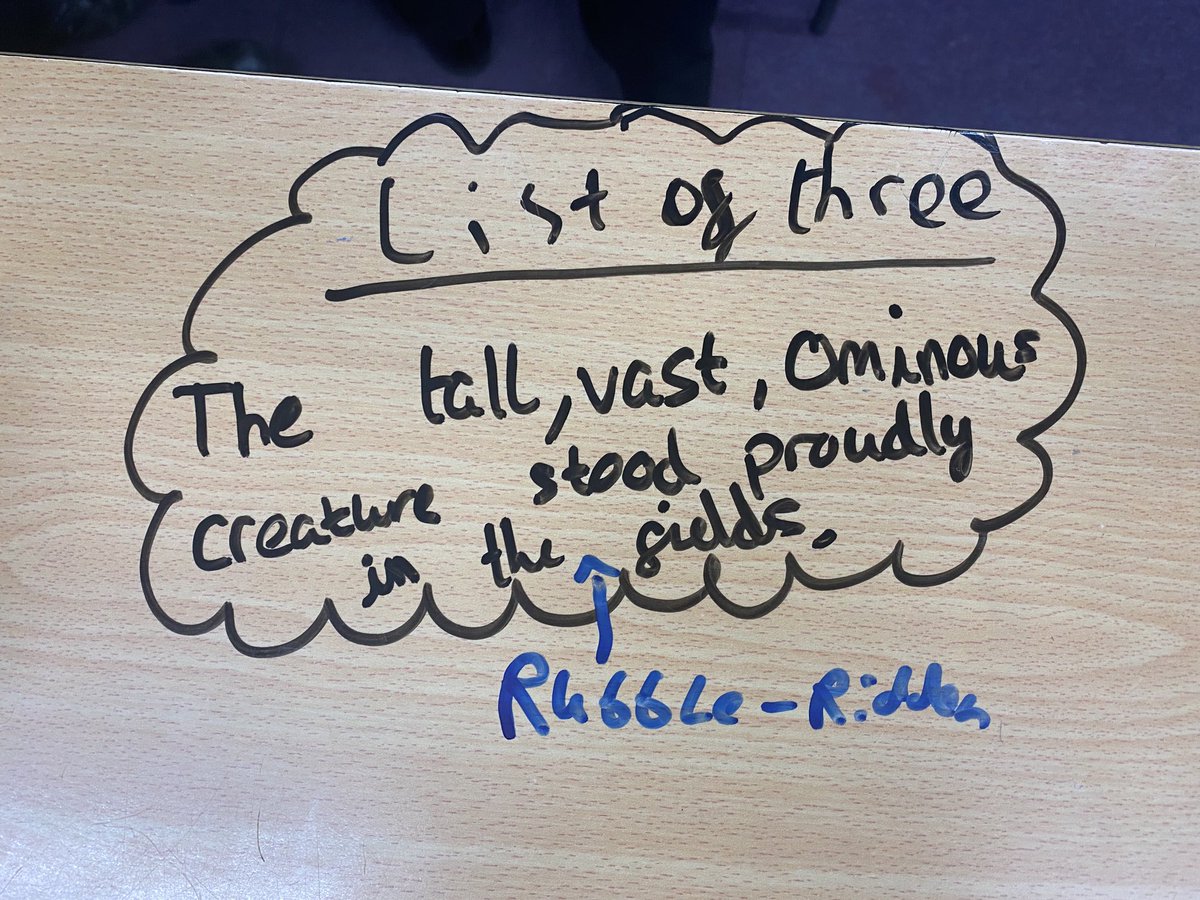 List of three
The tall, vast, ominous
creature stood proudly
in the fields.
Rubble-Ridden